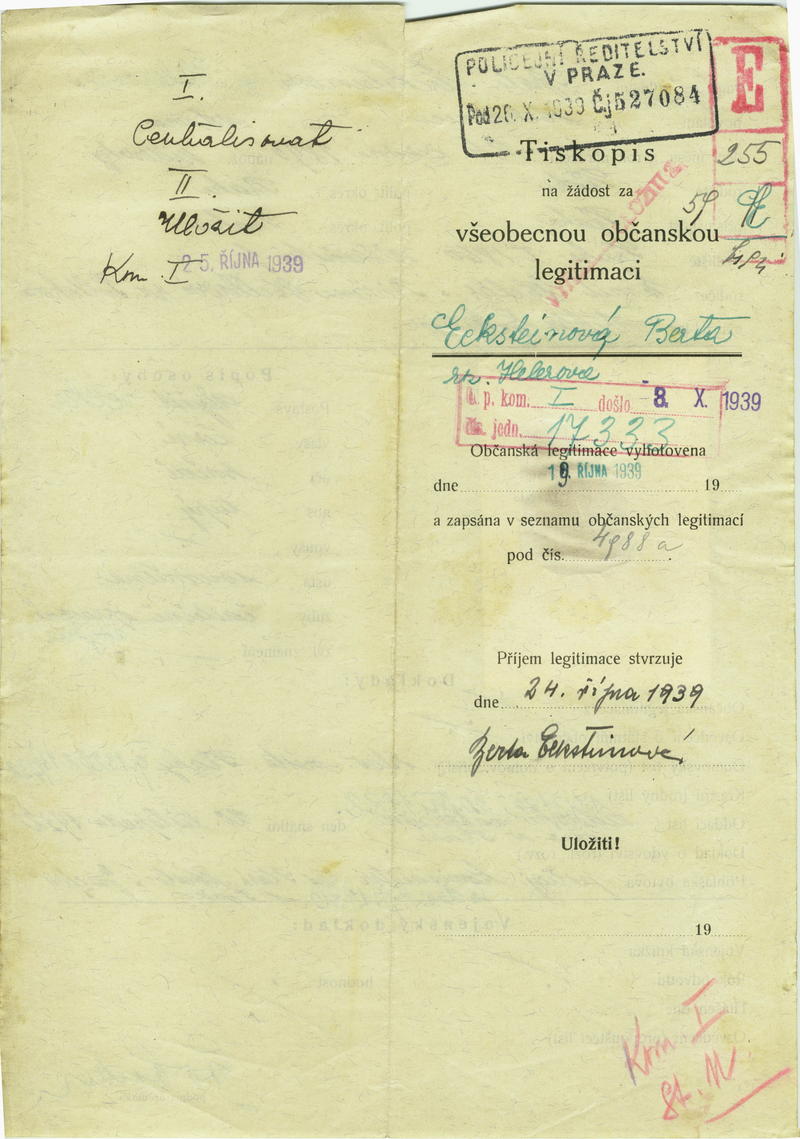 I.
Centralisovat
II.
Uložit
Kom. I
25. ŘÍJNA 1939
POLICEJNÍ ŘEDITELSTVÍ
V PRAZE.
Pod 20. X. 1939 Čj 527084
E
255
Tiskopis
na žádost za
59
všeobecnou občanskou
legitimaci
Ecksteinová Berta
roz. Helerová
o. p. kom. I došlo 8. X. 1939
čís. jedn. 17333
Občanská legitimace vyhotovena
ŘÍJNA 1939
dne 19
a zapsána v seznamu občanských legitimací
pod čís. 4988a
Příjem legitimace stvrzuje
dne 24. října 1939
Berta Ecksteinová
Uložiti!
19
Kom I
St. M.